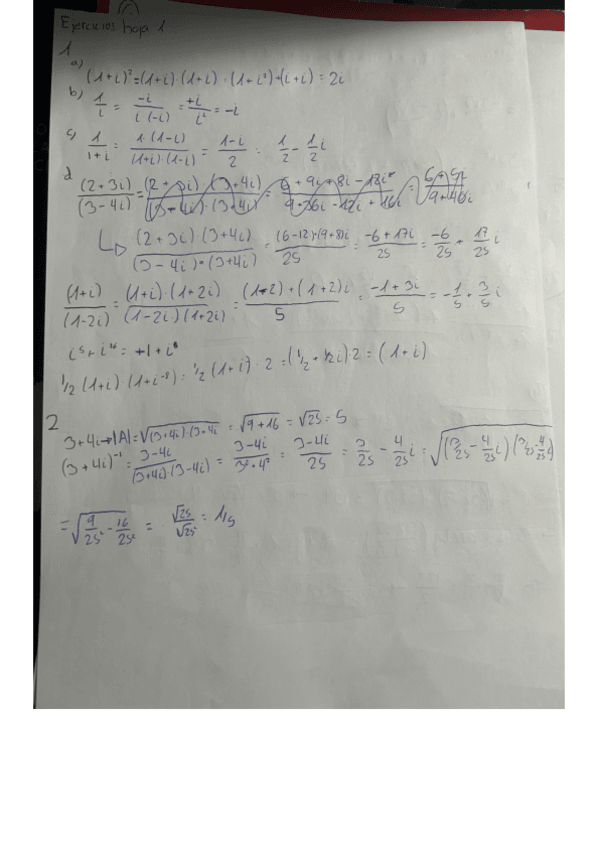 Ejercicios hoja 1
1
a) (1+i)² = (1+i)·(1+i) · (1+i²)+(i+i) = 2i
b) 1/i = -i/(i·(-i)) = +i/i² = -i
c) 1/(1+i) = 1·(1-i)/((1+i)·(1-i)) = (1-i)/2 = 1/2 - 1/2 i
d (2+3i)/(3-4i) =
(2+3i)·(3+4i)/((3-4i)·(3+4i)) = (6-12)+(9+8)i/25 = (-6+17i)/25 = -6/25 + 17/25 i
(1+i)/(1-2i) = (1+i)·(1+2i)/((1-2i)(1+2i)) = (1-2)+(1+2)i/5 = (-1+3i)/5 = -1/5 + 3/5 i
1/2 (1+i) (1+i⁻⁸) = 1/2 (1+i) · 2 = (1/2 + 1/2i)·2 = (1+i)
2
3+4i → |A| = √(3+4i)·(3+4i = √9+16 = √25 = 5
(3+4i)⁻¹ = (3-4i)/((3+4i)·(3-4i)) = (3-4i)/(3²+4²) = (3-4i)/25 = 3/25 - 4/25 i = √(3/25 - 4/25 i)(3/25 4/25 i)
= √(9/25² - 16/25²) = √25/√25² = 1/5